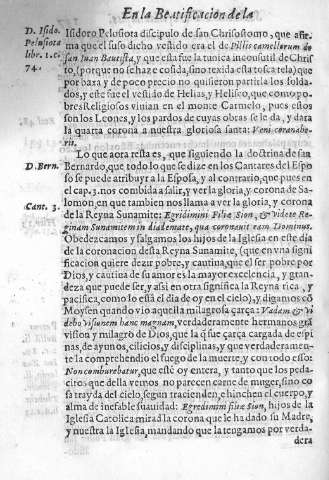 En la Beatificacion de la
D. Isido.
Pelusiota
libr. 1. c.
74.
Isidoro Pelusiota discipulo de san Chrisostomo, que afirma
que el suso dicho vestido era el de Pillis camellorum de
san Iuan Bautista, y que esta fue la tunica inconsutil de Christo,
(porque no se haze cosida, sino texida esta tosca tela) que
por baxa y de poco precio no quisieron partirla los soldados,
y este fue el vestido de Helias, y Heliseo, que como pobres
Religiosos viuian en el monte Carmelo, pues estos
son los Leones, y los pardos de cuyas obras se le da, y dara
la quarta corona a nuestra gloriosa santa: Veni coronaberis.
D. Bern.
Lo que aora resta es, que siguiendo la doctrina de san
Bernardo, que todo lo que se dize en los Cantares del Esposo
se puede atribuyr a la Esposa, y al contrario, que pues en
Cant. 3.
el cap. 3. nos combida a salir, y ver la gloria, y corona de Salomon,
en que tambien nos llama a ver la gloria, y corona
de la Reyna Sunamite: Egridimini Filiæ Sion, & videte Reginam
Sunamitem in diademate, qua coronauit eam Dominus.
Obedezcamos y salgamos los hijos de la Iglesia en este dia
de la coronacion desta Reyna Sunamite, (que en vna significacion
quiere dezir pobre, y cautiua, que el ser pobre por
Dios, y cautiua de su amor es la mayor excelencia, y grandeza
que puede ser, y assi en otra significa la Reyna rica, y
pacifica, como lo està el dia de oy en el cielo), y digamos cõ
Moysen quando vio aquella milagrosa çarça: Vadam & videbo
visionem hanc magnam, verdaderamente hermanos grã
vision y milagro de Dios, que la q̃ fue çarça cargada de espinas,
de ayunos, cilicios, y disciplinas, y que verdaderamente
la comprehendio el fuego de la muerte, y con todo esso
Non comburebatur, que estè oy entera, y tanto que los pedacitos
que della vemos no parecen carne de muger, sino cosa
trayda del cielo, segun tracienden, hinchen el cuerpo, y
alma de inefable suauidad: Egredimini filiæ Sion, hijos de la
Iglesia Catolica mirad la corona que le ha dado su Madre,
y nuestra la Iglesia, mandando que la tengamos por verda-
dera